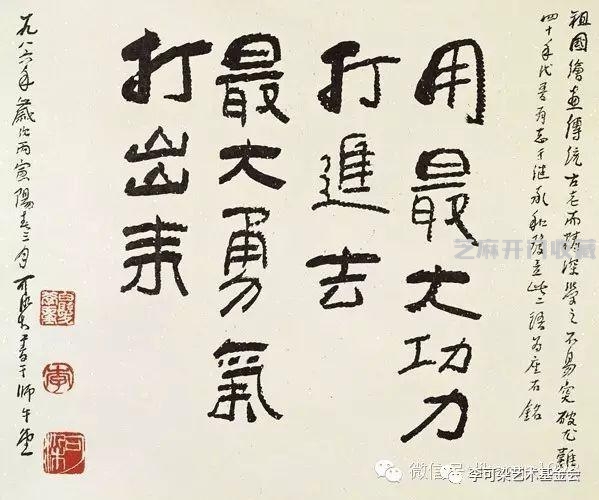 祖國繪畫傳統古老而精深學之不易突破尤難
四十年代吾有志于繼承和發立此二語為座右銘
用最大功力
打進去
最大勇氣
打出来
一九八六年歲次丙寅陽春三月可染書于師牛堂
李
可染
芝麻开门收藏
微信号
李可染艺术基金会